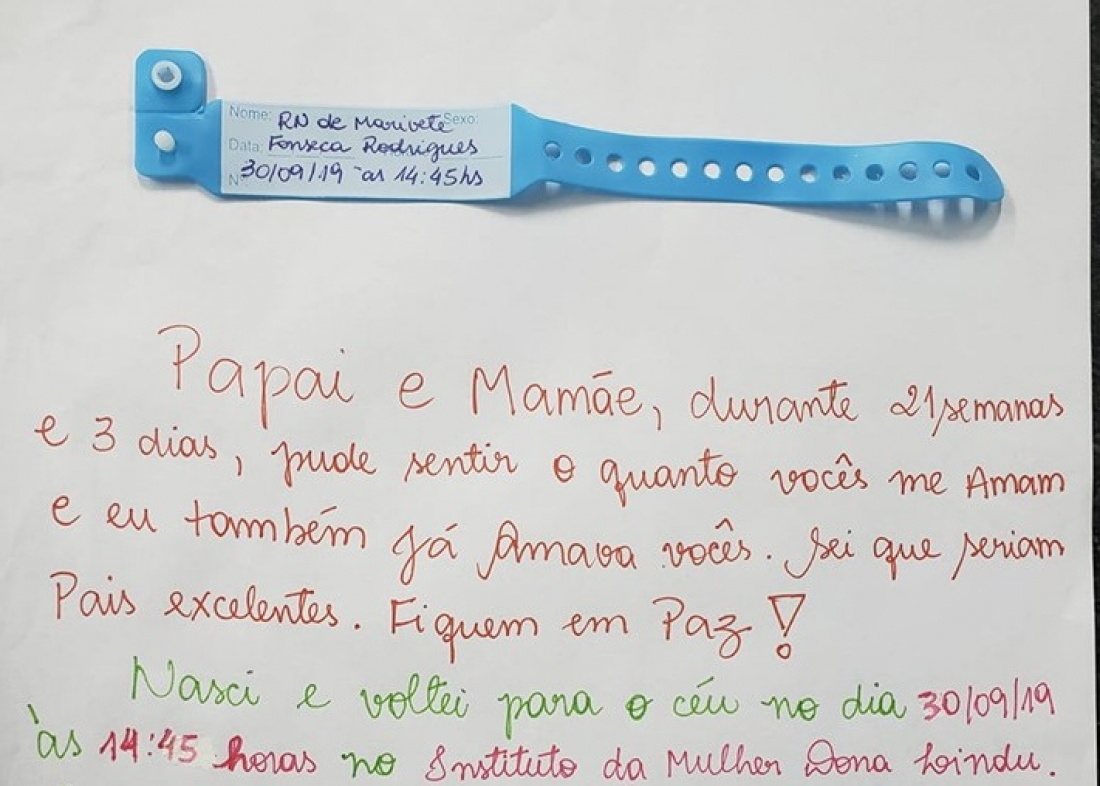 Nome: RN de Marivete Sexo:
Data: Fonseca Rodrigues
Nº 30/09/19 às 14:45hs
Papai e Mamãe, durante 21 semanas
e 3 dias, pude sentir o quanto vocês me Amam
e eu também já Amava vocês. Sei que seriam
Pais excelentes. Fiquem em Paz!
Nasci e voltei para o céu no dia 30/09/19
às 14:45 horas no Instituto da Mulher Dona Lindu.